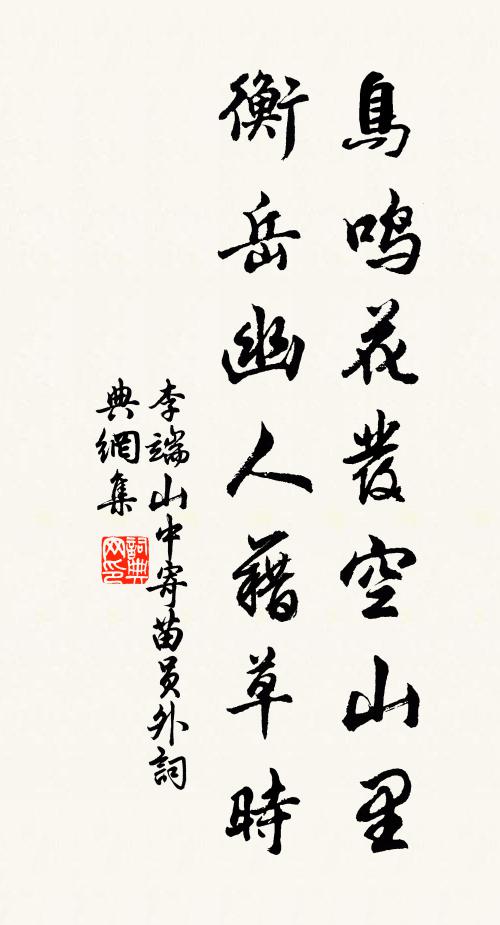 鳥鳴花發空山里
衡岳幽人藉草時
李端山中寄苗员外詞
典網集
詞典网印